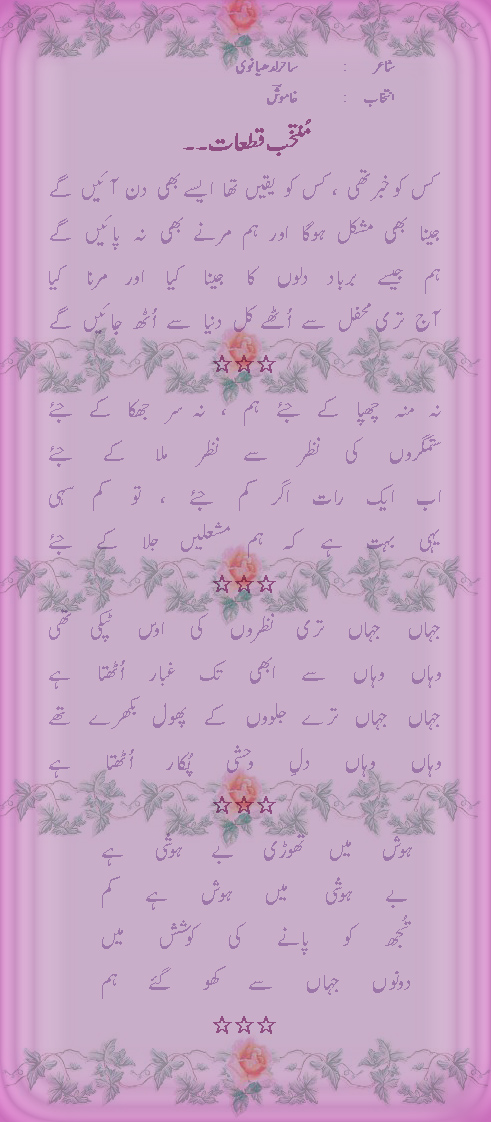 شاعر : ساحر لدھیانوی
انتخاب : خاموش
مُنتخب قطعات۔۔
کس کو خبر تھی ، کس کو یقیں تھا ایسے بھی دن آئیں گے
جینا بھی مشکل ہوگا اور ہم مرنے بھی نہ پائیں گے
ہم جیسے برباد دلوں کا جینا کیا اور مرنا کیا
آج تری محفل سے اُٹھے کل دنیا سے اُٹھ جائیں گے
☆☆☆
نہ منہ چھپا کے جئے ہم ، نہ سر جھکا کے جئے
ستمگروں کی نظر سے نظر ملا کے جئے
اب ایک رات اگر کم جئے ، تو کم سہی
یہی بہت ہے کہ ہم مشعلیں جلا کے جئے
☆☆☆
جہاں جہاں تری نظروں کی اوس ٹپکی تھی
وہاں وہاں سے ابھی تک غبار اُٹھتا ہے
جہاں جہاں ترے جلووں کے پھول بکھرے تھے
وہاں وہاں دلِ وحشی پُکار اُٹھتا ہے
☆☆☆
ہوش میں تھوڑی بے ہوشی ہے
بے ہوشی میں ہوش ہے کم
تُجھ کو پانے کی کوشش میں
دونوں جہاں سے کھو گئے ہم
☆☆☆